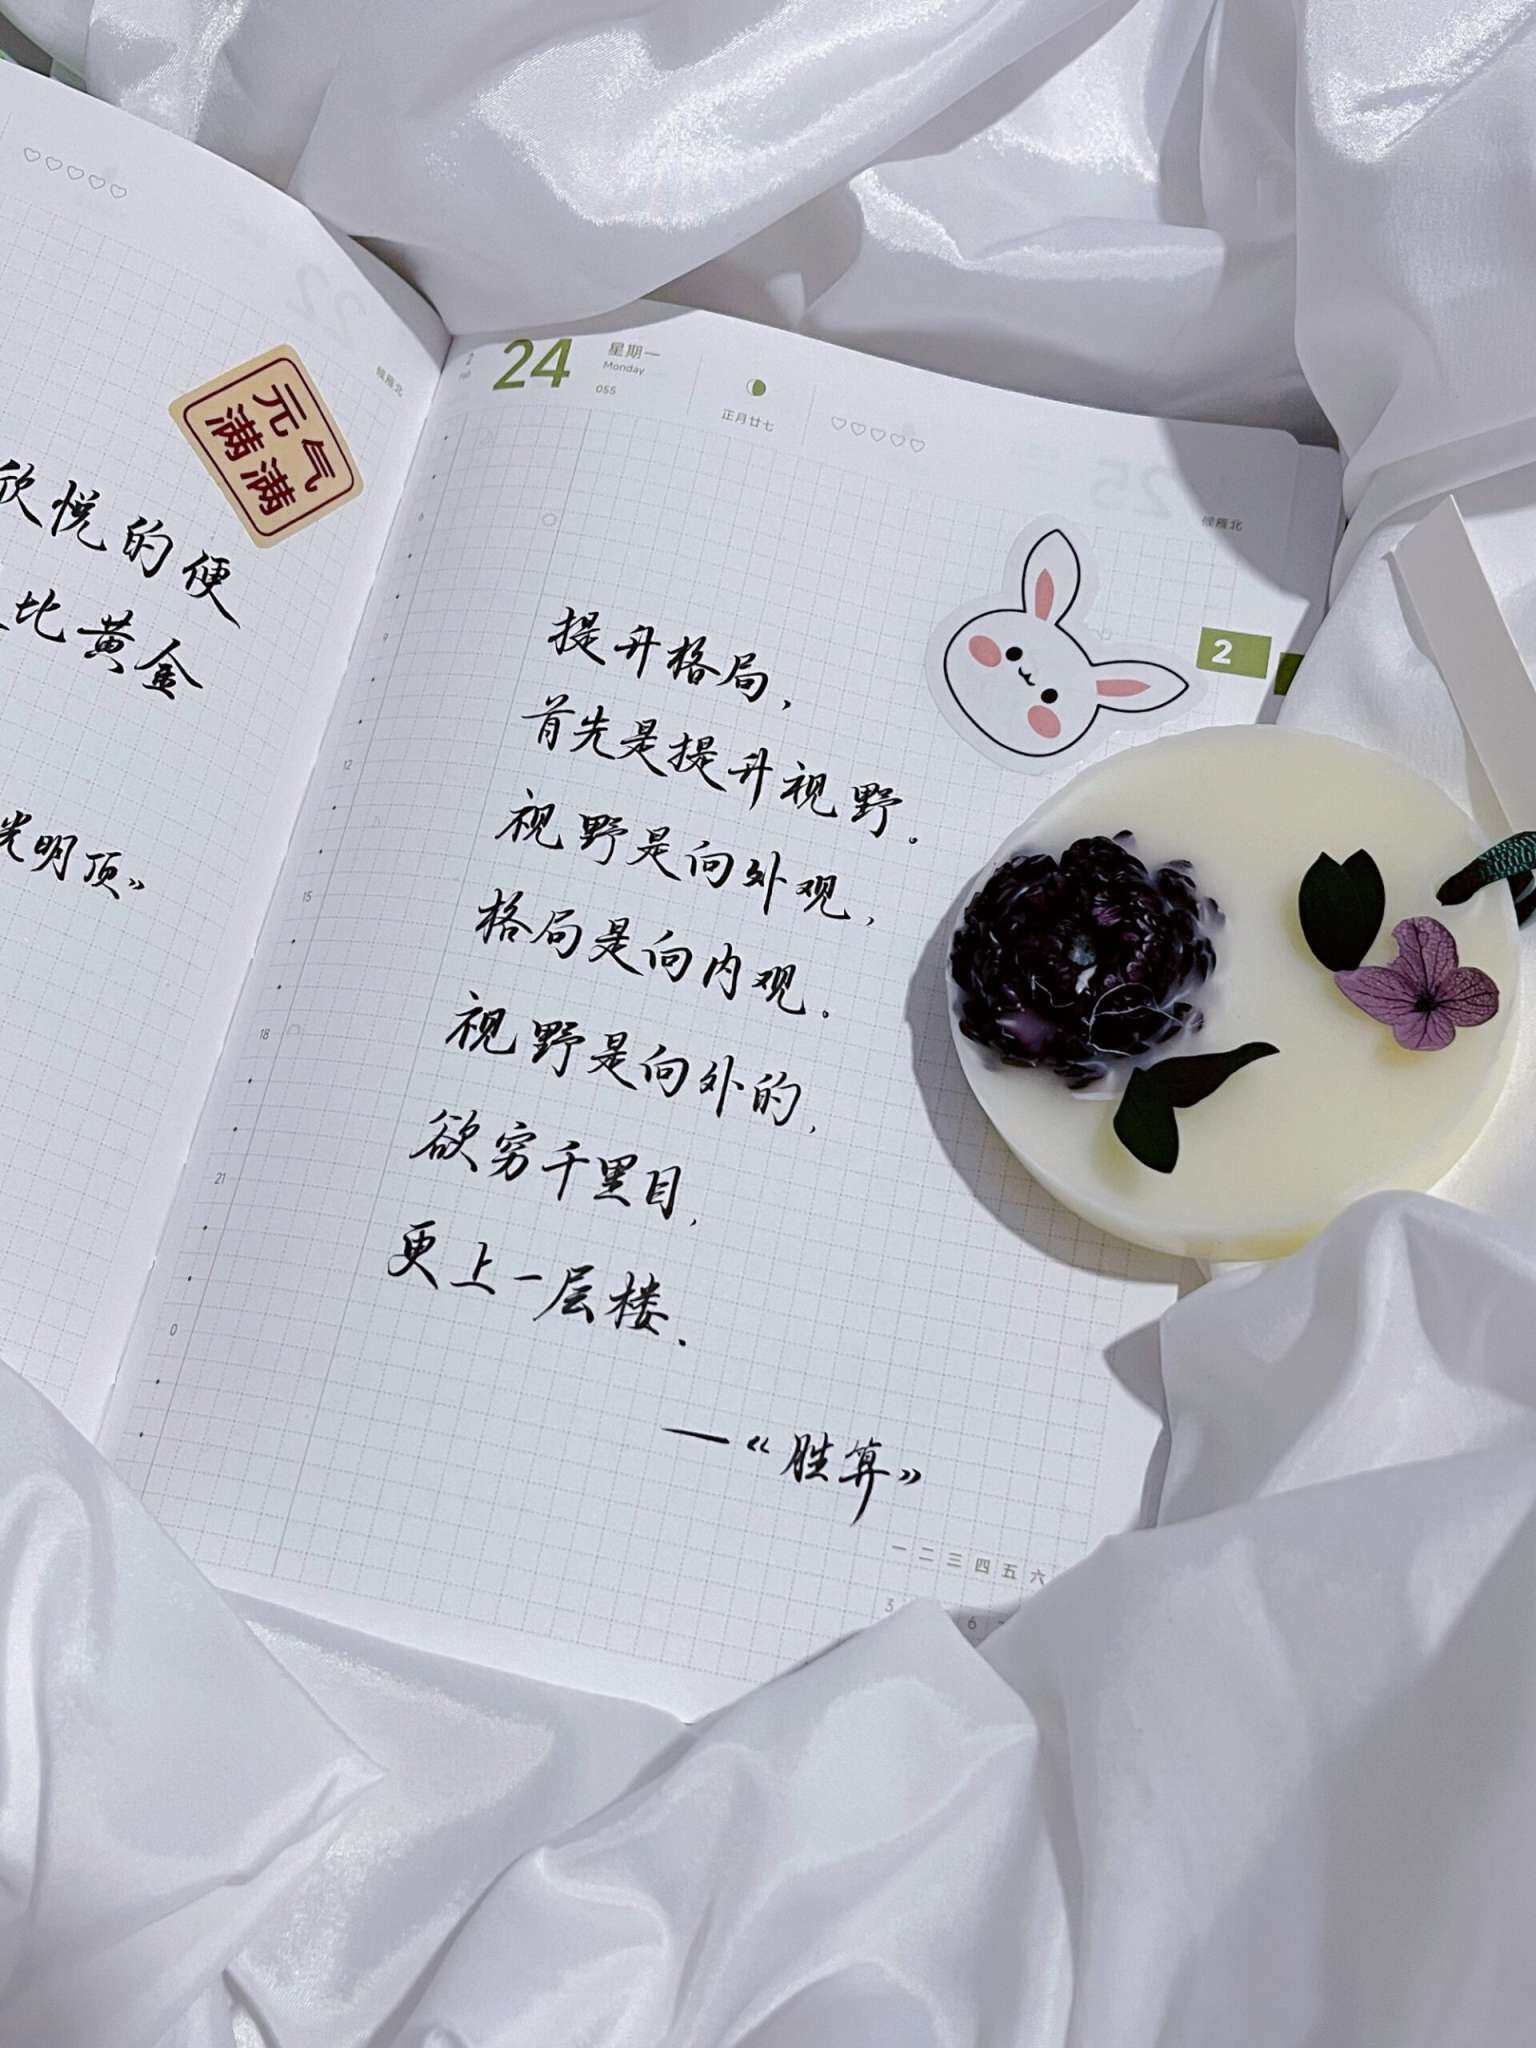 元气
满满
欣悦的便
比黄金
光明顶》
候雁北
2
24
星期一
Monday
055
正月廿七
25
候雁北
2
6
9
12
15
18
21
0
提升格局，
首先是提升视野。
视野是向外观，
格局是向内观。
视野是向外的，
欲穷千里目，
更上一层楼．
—《胜算》
一 二 三 四 五 六
3 6